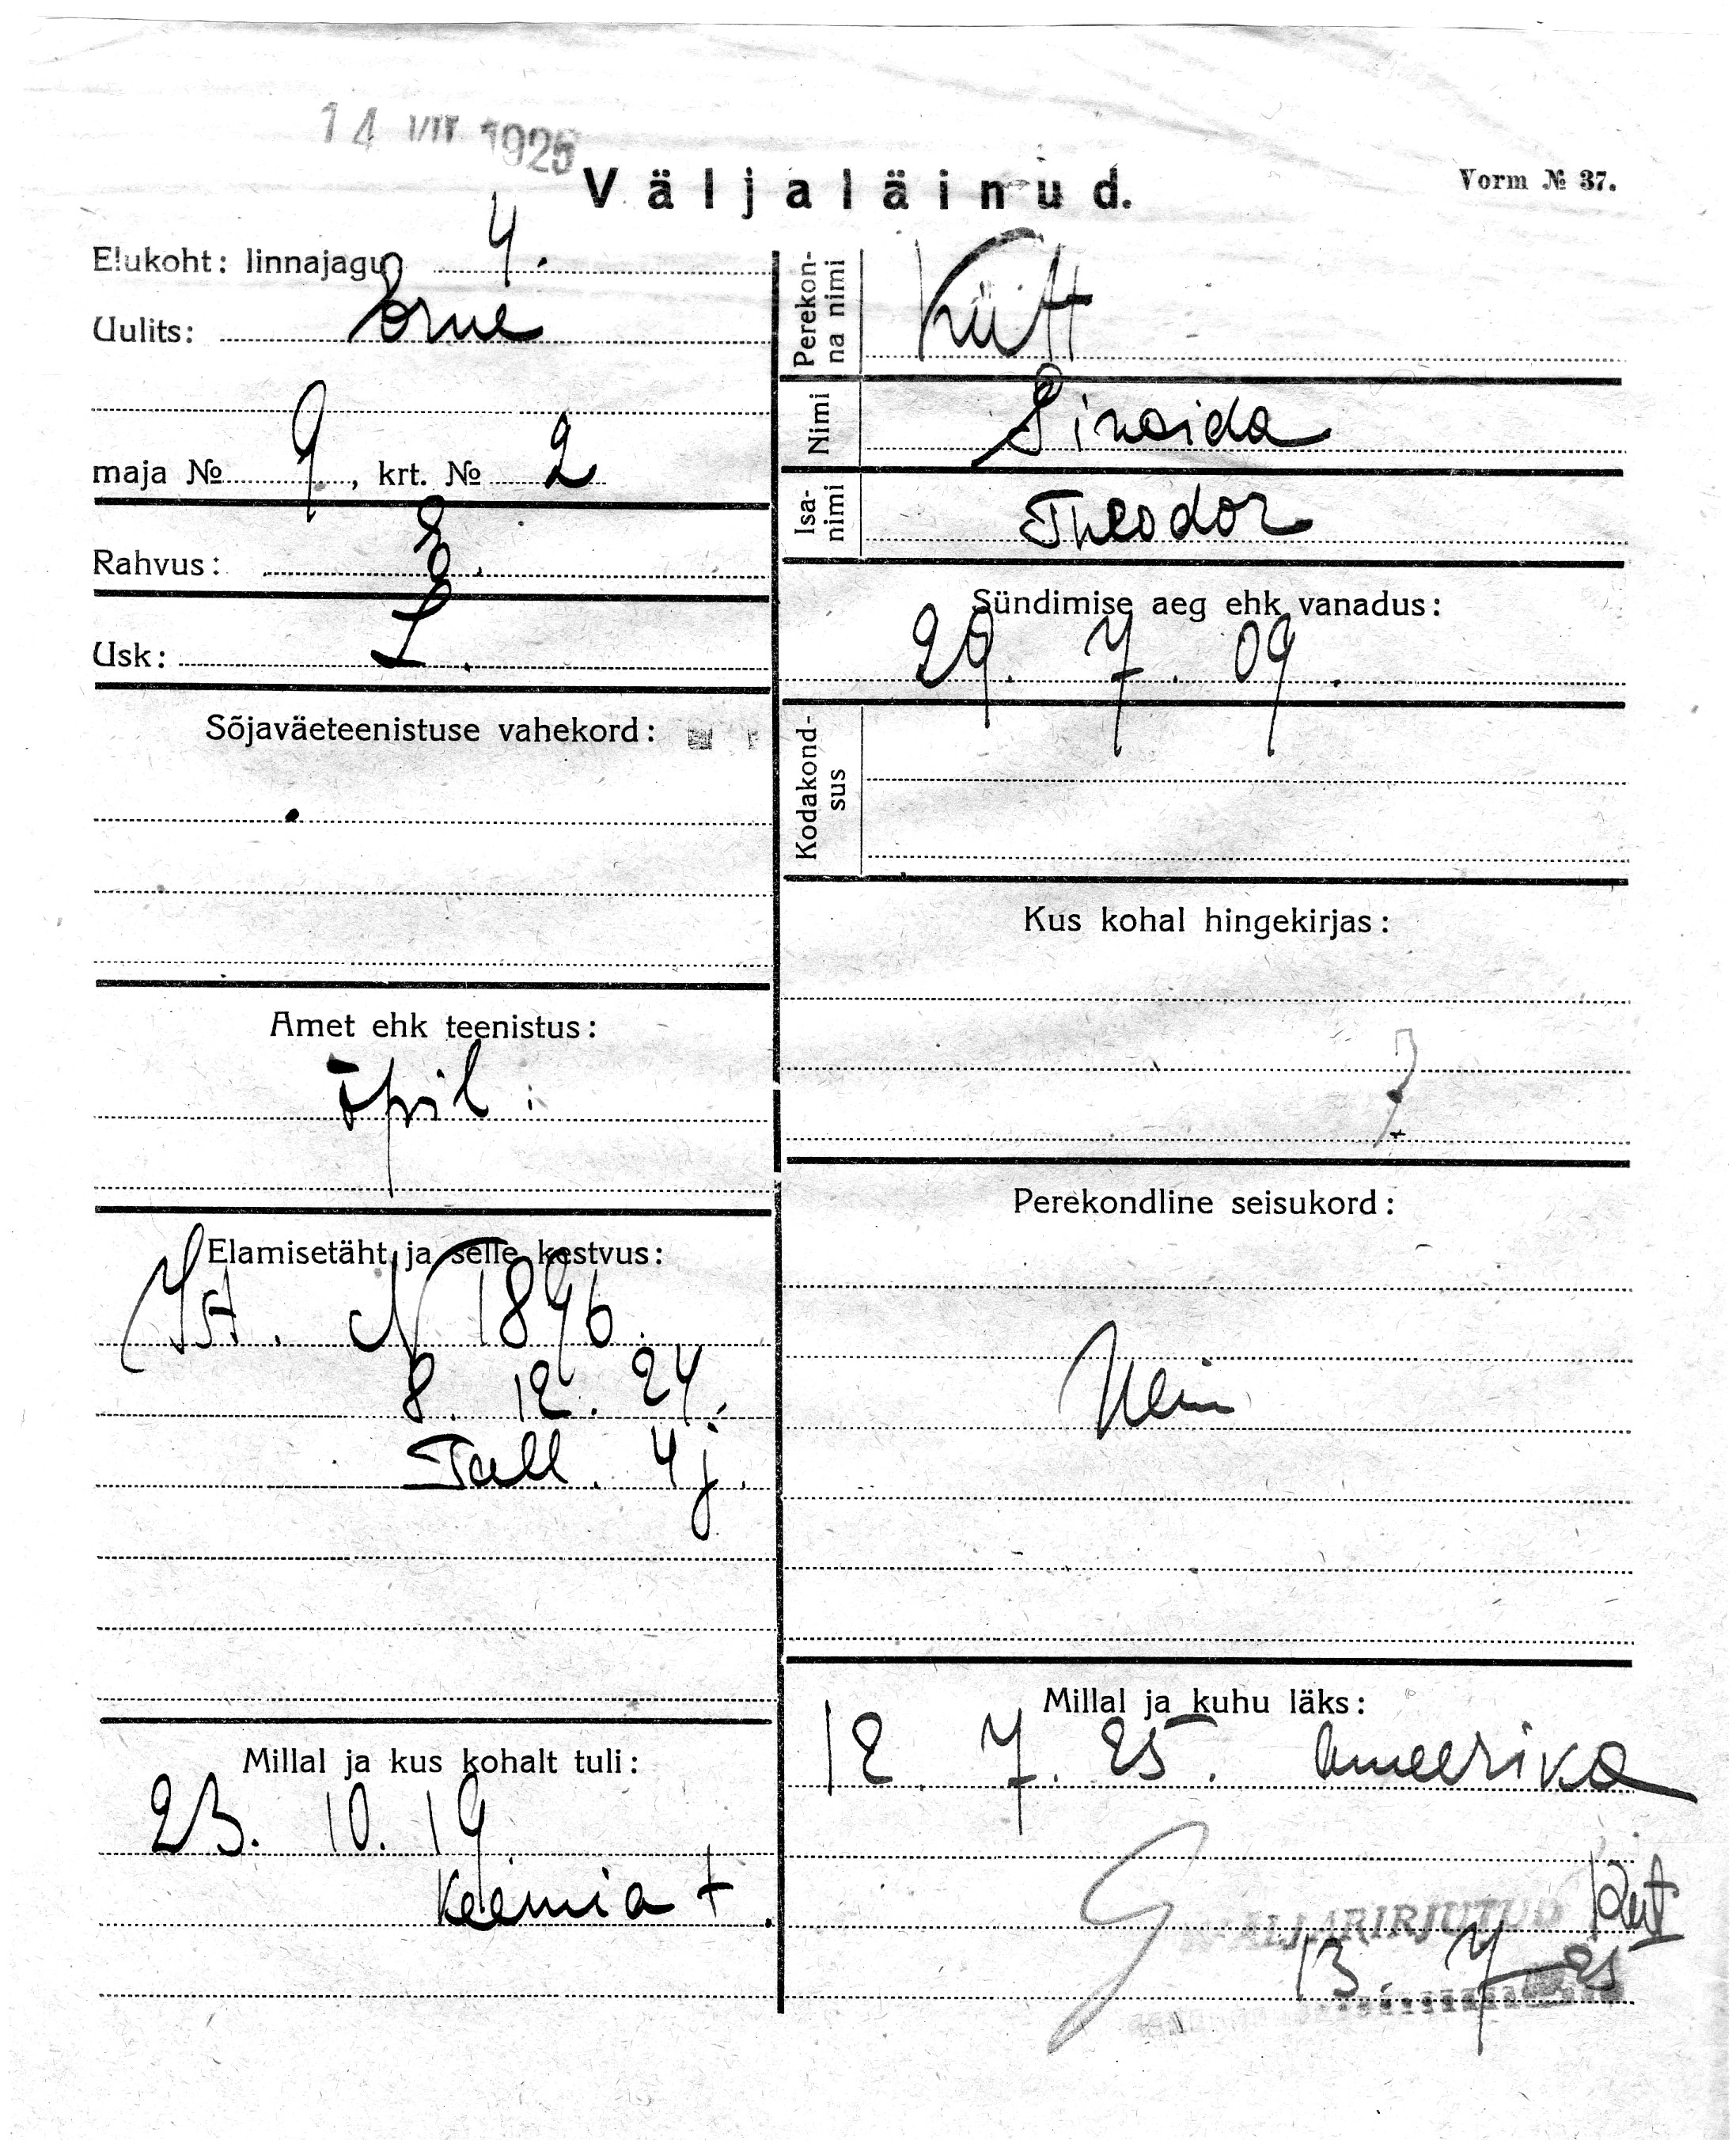 14 VII 1925
Väljaläinud.
Vorm № 37.
Elukoht: linnajagu 4.
Uulits: Õrne
maja № 9, krt. № 2
Rahvus: E.
Usk: L.
Sõjaväeteenistuse vahekord:
Amet ehk teenistus:
õpil:
Elamisetäht ja selle kestvus:
N 1896.
8. 12. 24.
Tall. 4 j.
Millal ja kus kohalt tuli:
23. 10. 19
Perekonna nimi
Kütt
Nimi
Sinaida
Isanimi
Theodor
Sündimise aeg ehk vanadus:
29. 7. 09.
Kodakondsus
Kus kohal hingekirjas:
Perekondline seisukord:
Millal ja kuhu läks:
12. 7. 25. Ameerika
13 7 25